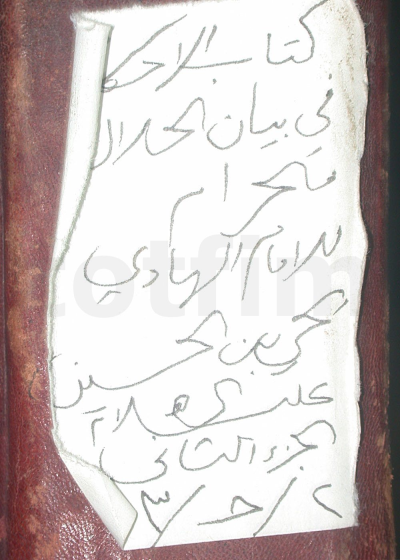 كتاب الاحكا
في بيان الحلال
والحرام
للامام الهادي
يحي بن الحسين
عليه السلام
الجزء الثاني
٢/ح/٣
totfim